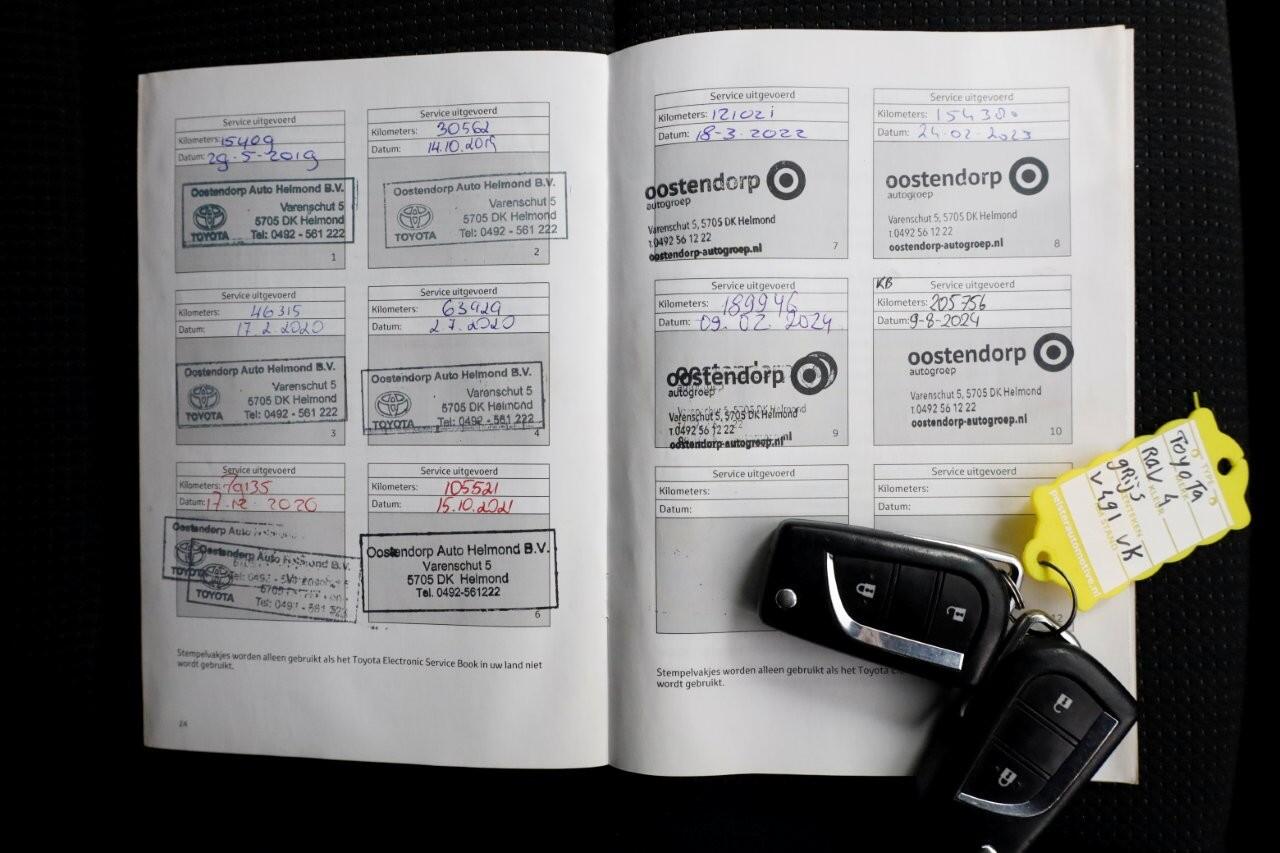 Service uitgevoerd
Kilometers: 15409
Datum: 29-5-2019
Oostendorp Auto Helmond B.V.
Varenschut 5
5705 DK Helmond
TOYOTA Tel: 0492 - 561 222
1
Service uitgevoerd
Kilometers: 30562
Datum: 14.10.2019
Oostendorp Auto Helmond B.V.
Varenschut 5
5705 DK Helmond
TOYOTA Tel: 0492 - 561 222
2
Service uitgevoerd
Kilometers: 46315
Datum: 17.2.2020
Oostendorp Auto Helmond B.V.
Varenschut 5
5705 DK Helmond
TOYOTA Tel: 0492 - 561 222
3
Service uitgevoerd
Kilometers: 63929
Datum: 2 7.2020
Oostendorp Auto Helmond B.V.
Varenschut 5
5705 DK Helmond
TOYOTA Tel: 0492 - 561 222
4
Service uitgevoerd
Kilometers: 79135
Datum: 17.12 2020
Oostendorp Auto
Oostendorp Auto Helmond B.V.
TOYOTA
Service uitgevoerd
Kilometers: 105521
Datum: 15.10.2021
Oostendorp Auto Helmond B.V.
Varenschut 5
5705 DK Helmond
Tel. 0492-561222
6
Stempelvakjes worden alleen gebruikt als het Toyota Electronic Service Book in uw land niet
wordt gebruikt.
24
Service uitgevoerd
Kilometers: 121021
Datum: 18-3-2022
oostendorp
autogroep
Varenschut 5, 5705 DK Helmond
t.0492 56 12 22
oostendorp-autogroep.nl
7
Service uitgevoerd
Kilometers: 154380
Datum: 24-02-2023
oostendorp
autogroep
Varenschut 5, 5705 DK Helmond
t.0492 56 12 22
oostendorp-autogroep.nl
8
Service uitgevoerd
Kilometers: 189946
Datum: 09.02.2024
oostendorp
autogroep
Varenschut 5, 5705 DK Helmond
t.0492 56 12 22
oostendorp-autogroep.nl
9
KB Service uitgevoerd
Kilometers: 205756
Datum: 9-8-2024
oostendorp
autogroep
Varenschut 5, 5705 DK Helmond
t.0492 56 12 22
oostendorp-autogroep.nl
10
Service uitgevoerd
Kilometers:
Datum:
Service uitgevoerd
Kilometers:
Datum:
12
Stempelvakjes worden alleen gebruikt als het Toyota
wordt gebruikt.
Toyota
RAV 4
grijs
V491 VK